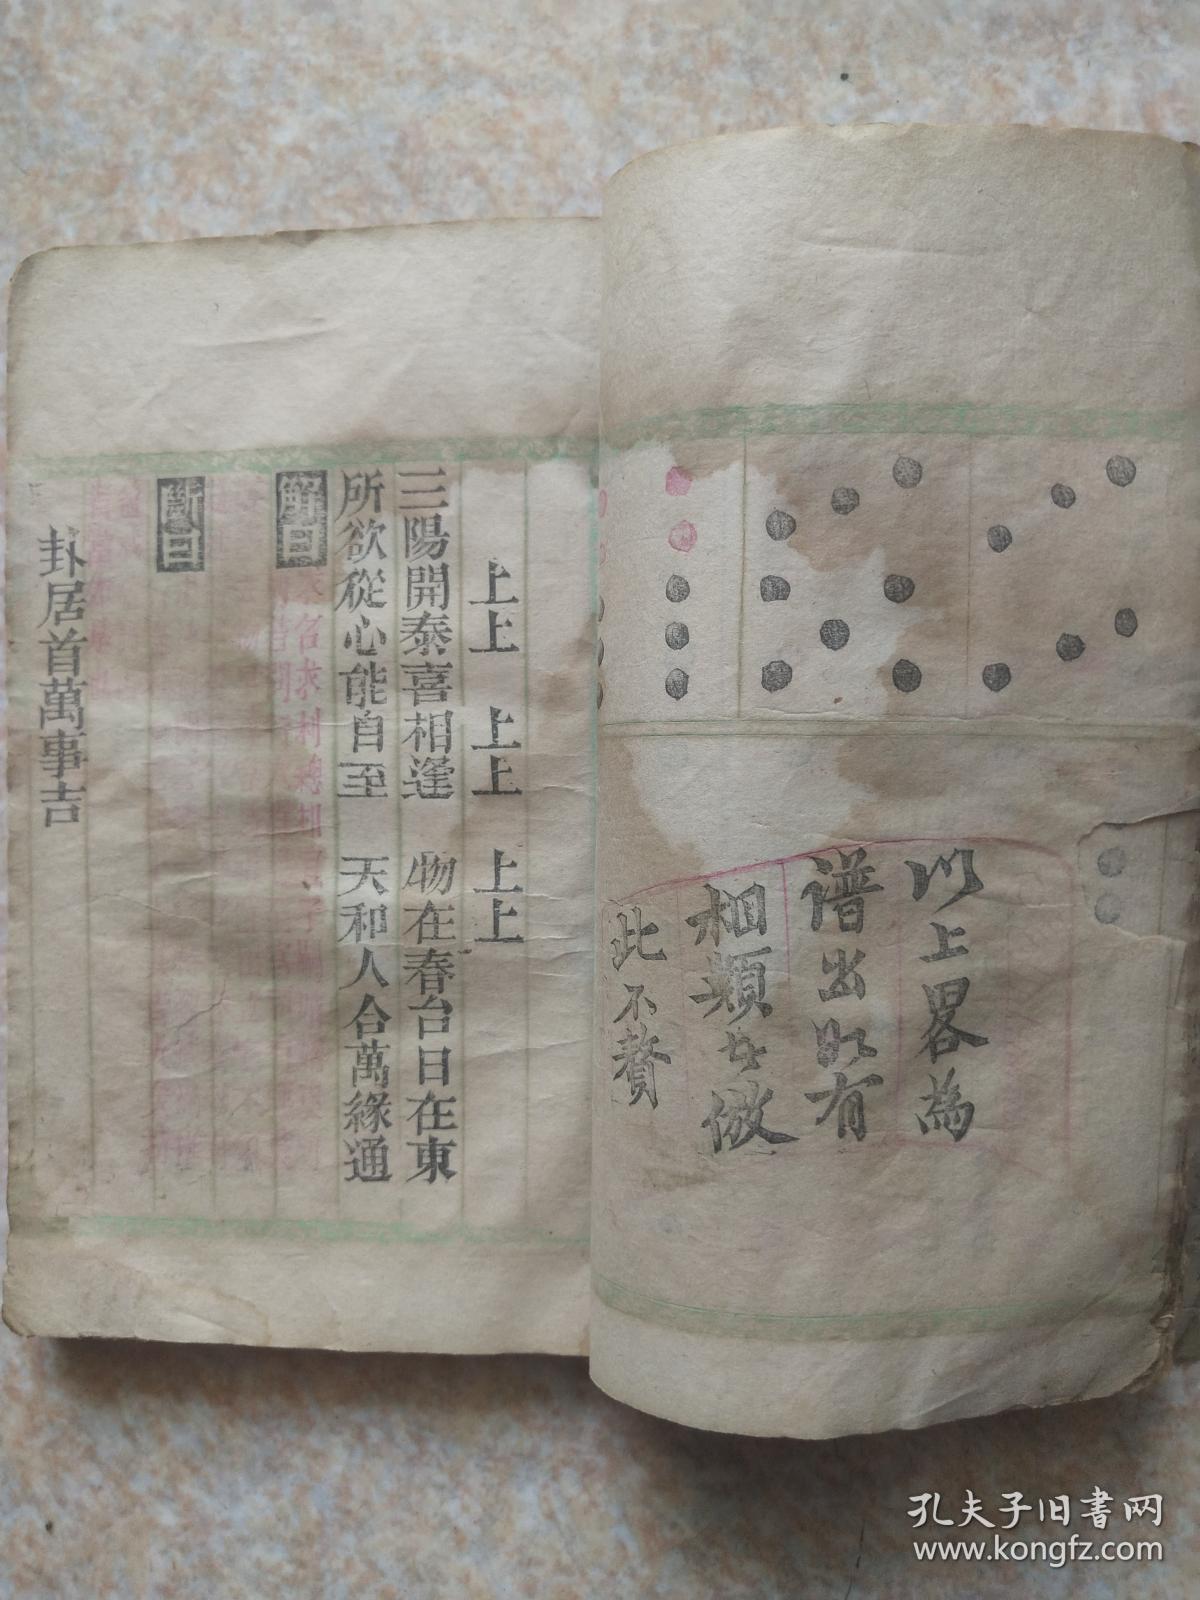 以上畧為
譜出如有
相類者倣
此不贅
上上 上上 上上
三陽開泰喜相逢 物在春台日在東
所欲從心能自至 天和人合萬緣通
解曰
求名求利
斷曰
卦居首萬事吉
孔夫子旧书网
www.kongfz.com